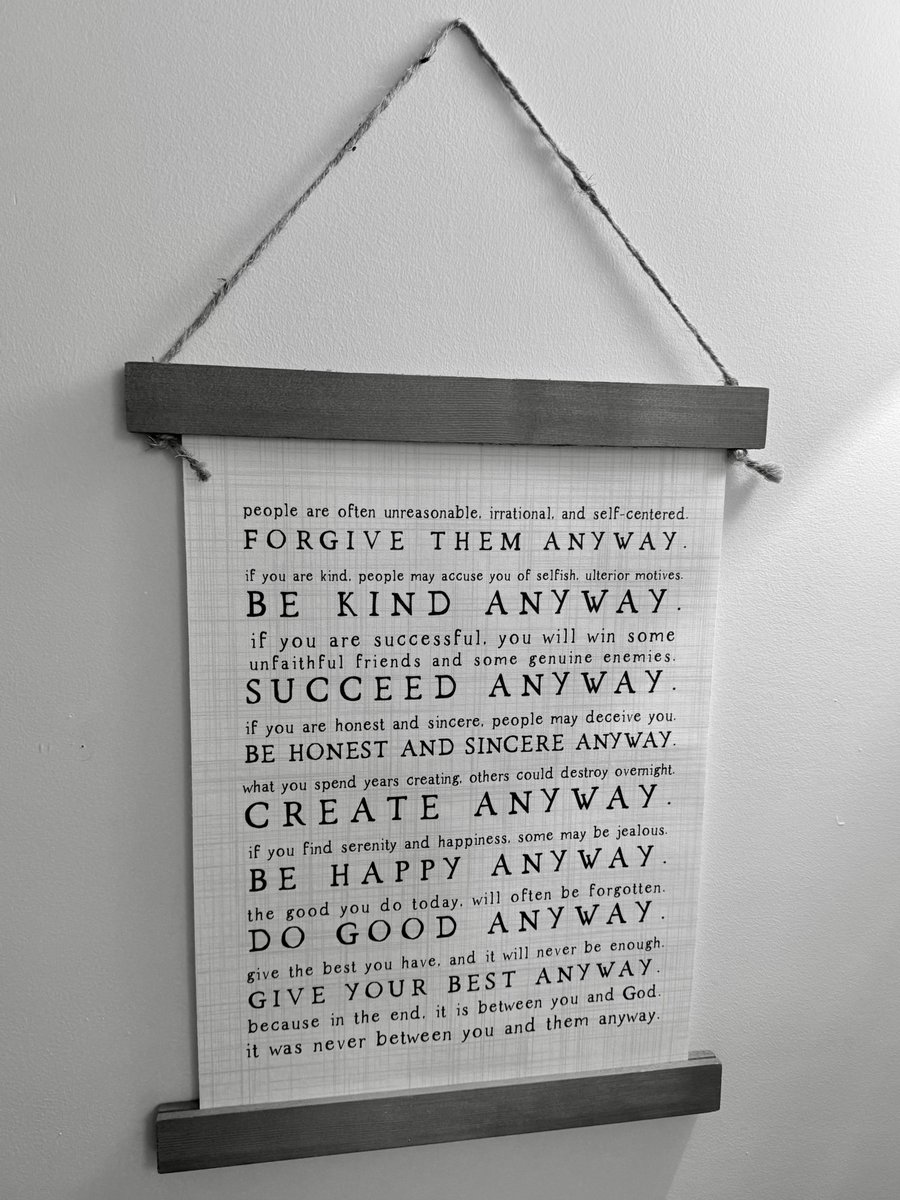 people are often unreasonable, irrational, and self-centered.
FORGIVE THEM ANYWAY.
if you are kind, people may accuse you of selfish, ulterior motives.
BE KIND ANYWAY.
if you are successful, you will win some
unfaithful friends and some genuine enemies.
SUCCEED ANYWAY.
if you are honest and sincere, people may deceive you.
BE HONEST AND SINCERE ANYWAY.
what you spend years creating, others could destroy overnight.
CREATE ANYWAY.
if you find serenity and happiness, some may be jealous.
BE HAPPY ANYWAY.
the good you do today, will often be forgotten.
DO GOOD ANYWAY.
give the best you have, and it will never be enough.
GIVE YOUR BEST ANYWAY.
because in the end, it is between you and God.
it was never between you and them anyway.